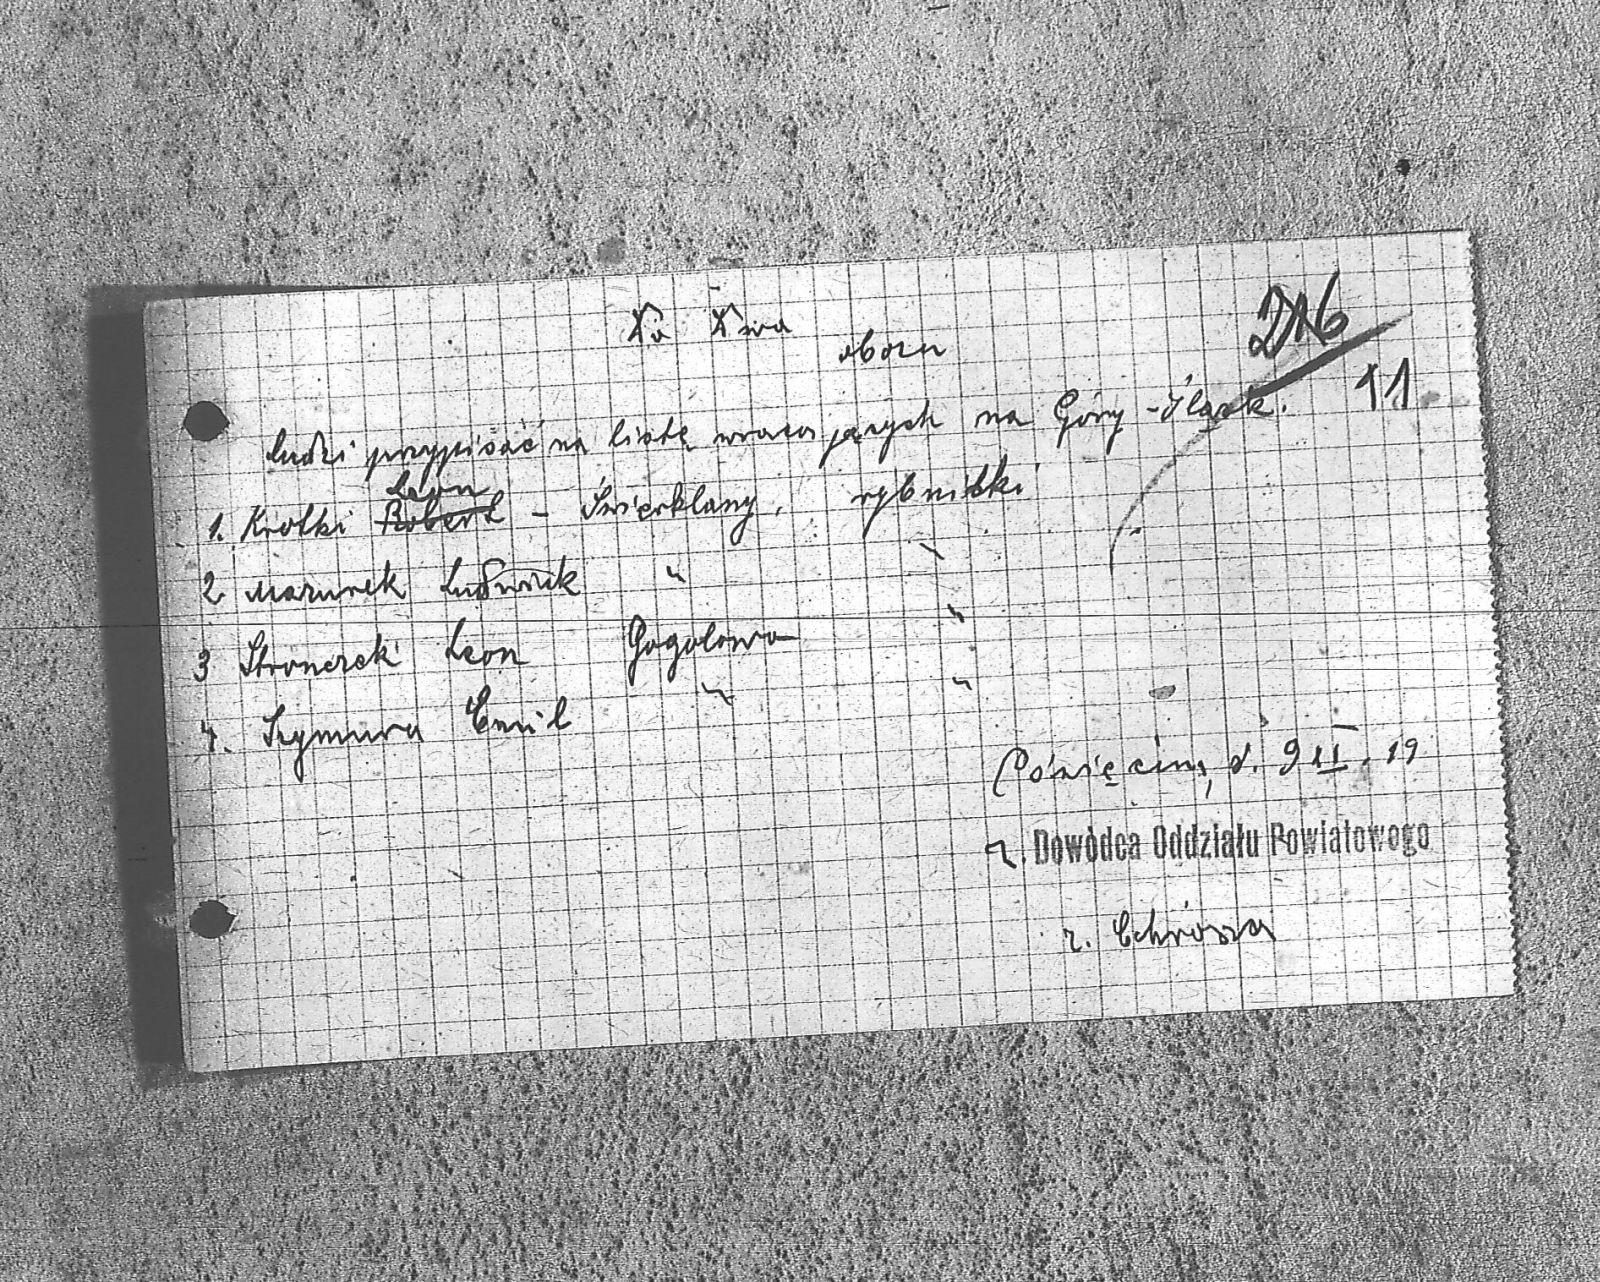 Do Dwa
obozu
216
11
ludzi przypisać na listę wracających na Górny-Śląsk.
Leon
1. Krotki Robert - Świerklany, rybnicki
2 Mazurek Ludwik " "
3 Stronczek Leon Gogolowa "
4. Szymura Emil " "
Oświęcim, d. 9 II. 19
z. Dowódca Oddziału Powiatowego